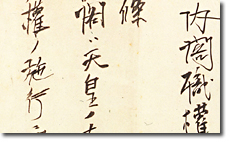 内閣職權
條
閣ハ天皇ノ
權ノ施行ニ